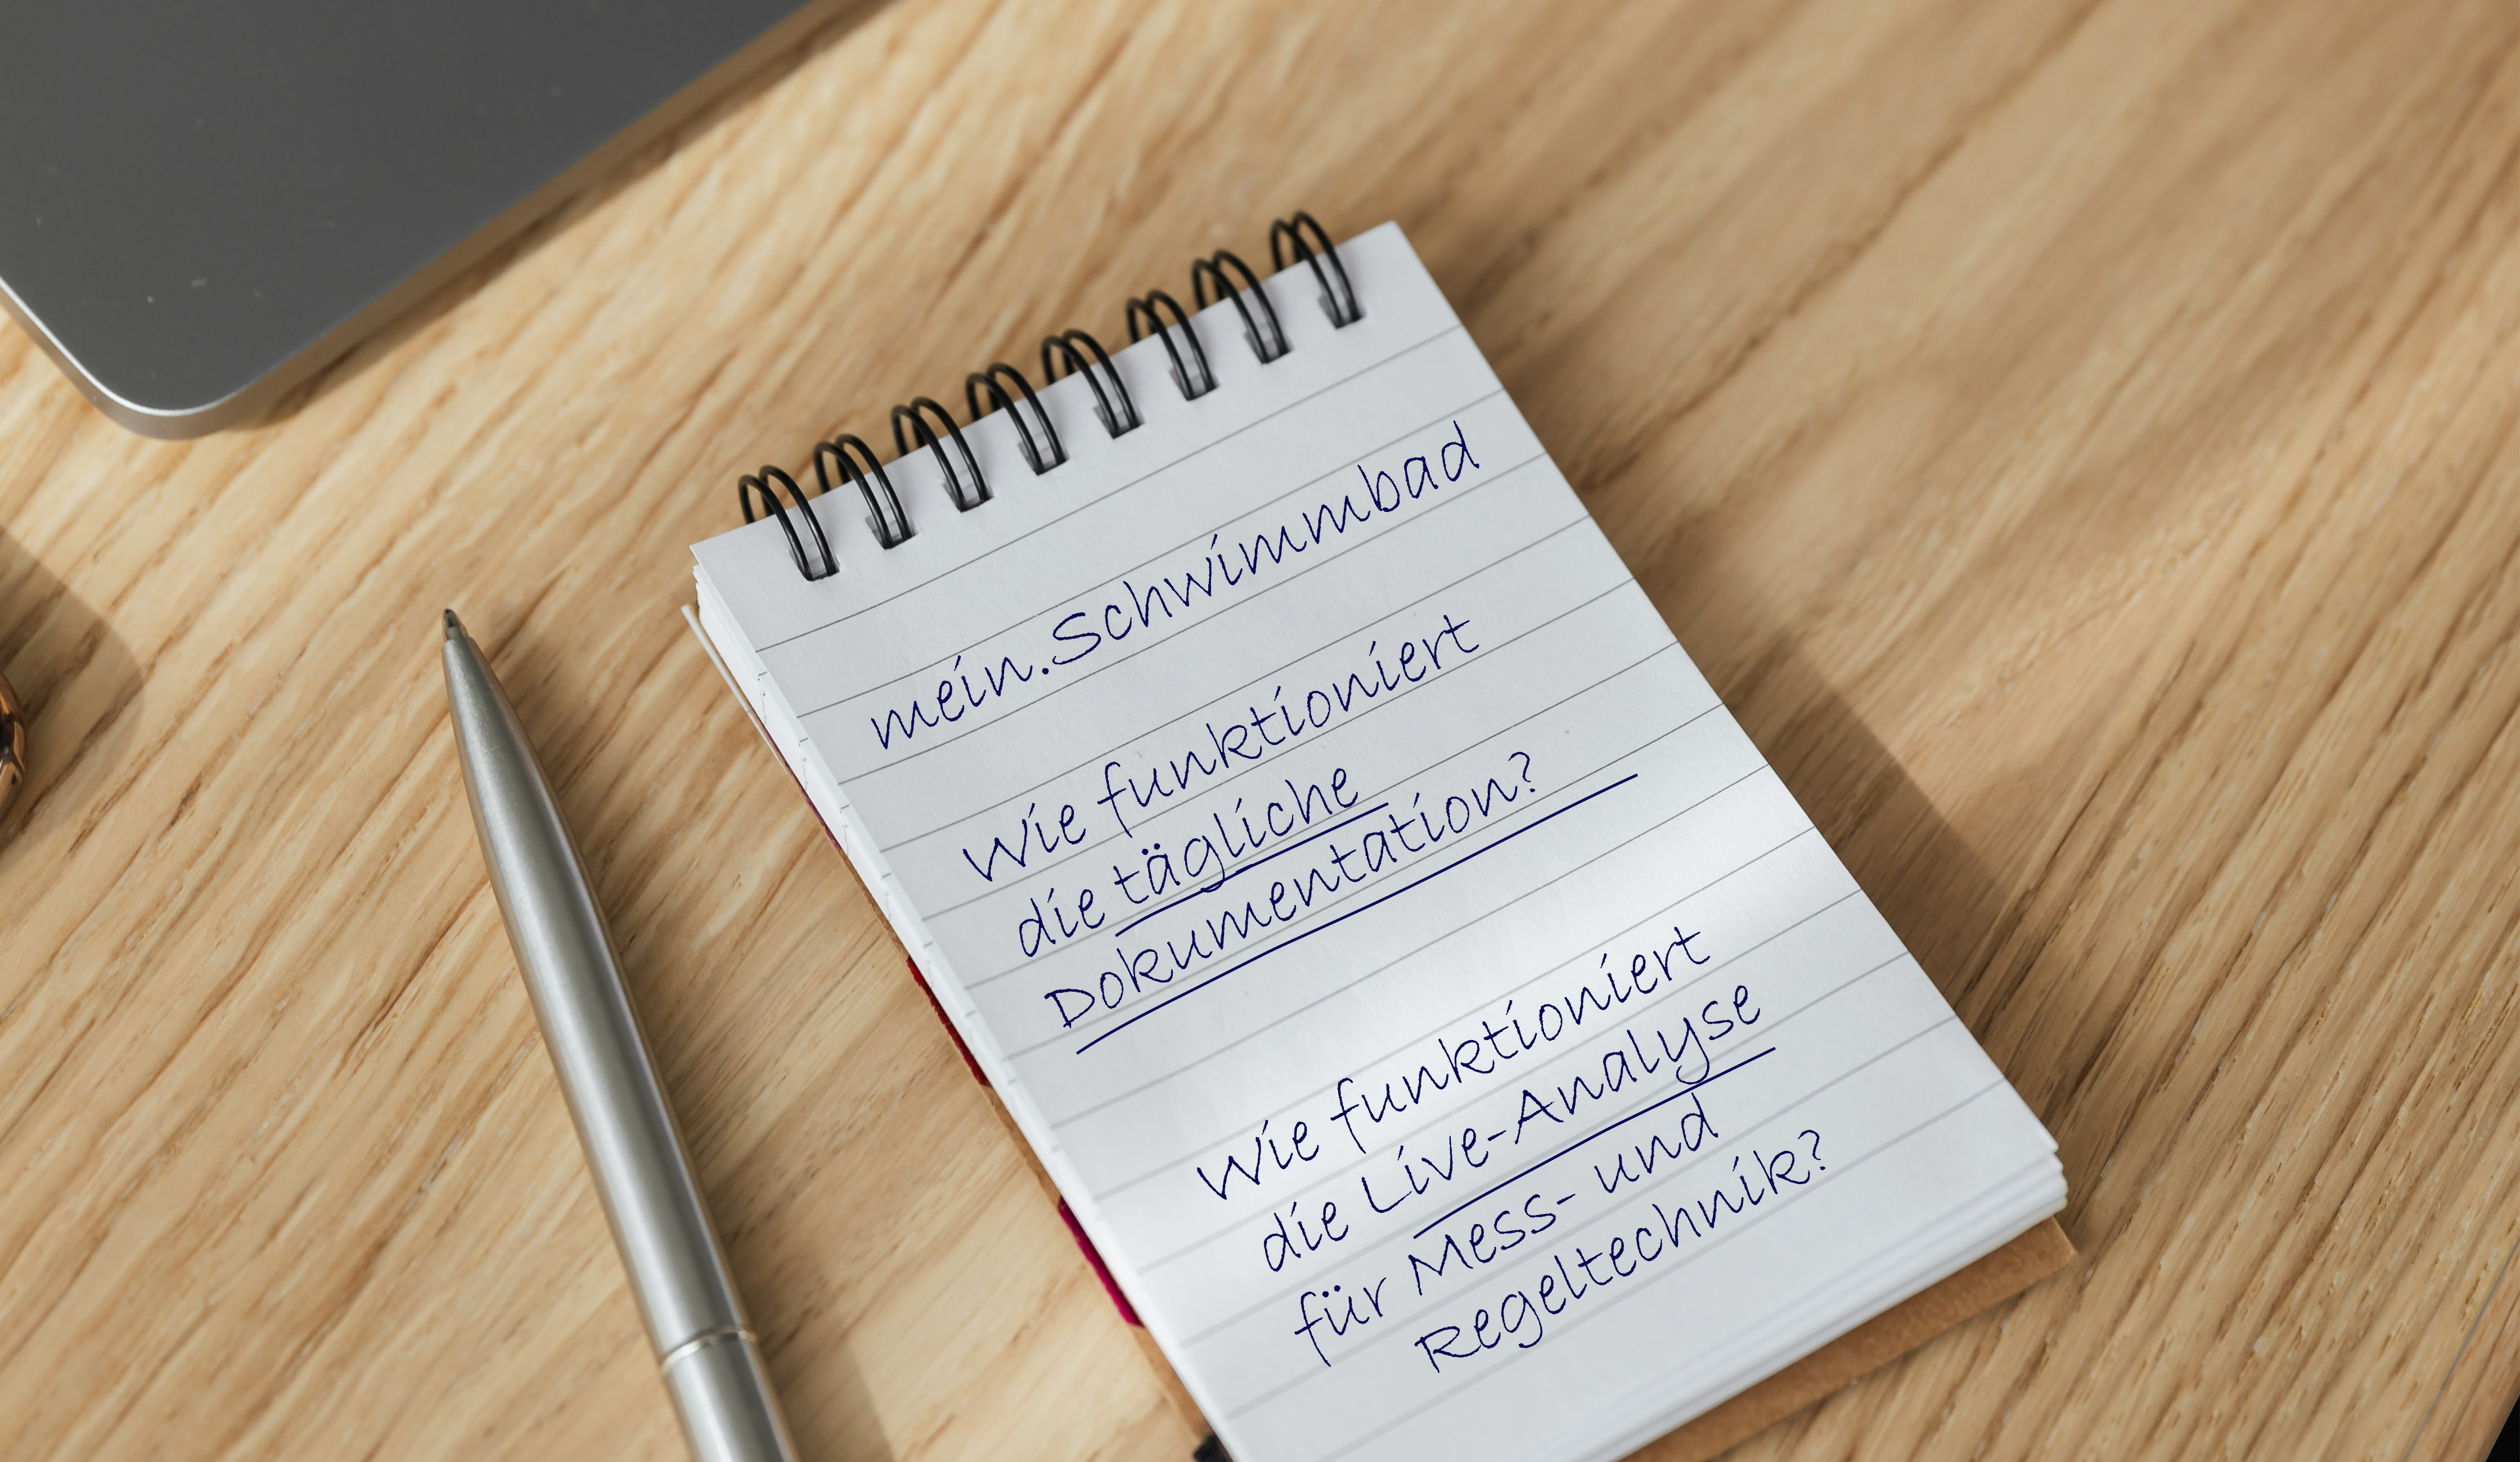 mein.Schwimmbad
Wie funktioniert
die tägliche
Dokumentation?
Wie funktioniert
die Live-Analyse
für Mess- und
Regeltechnik?